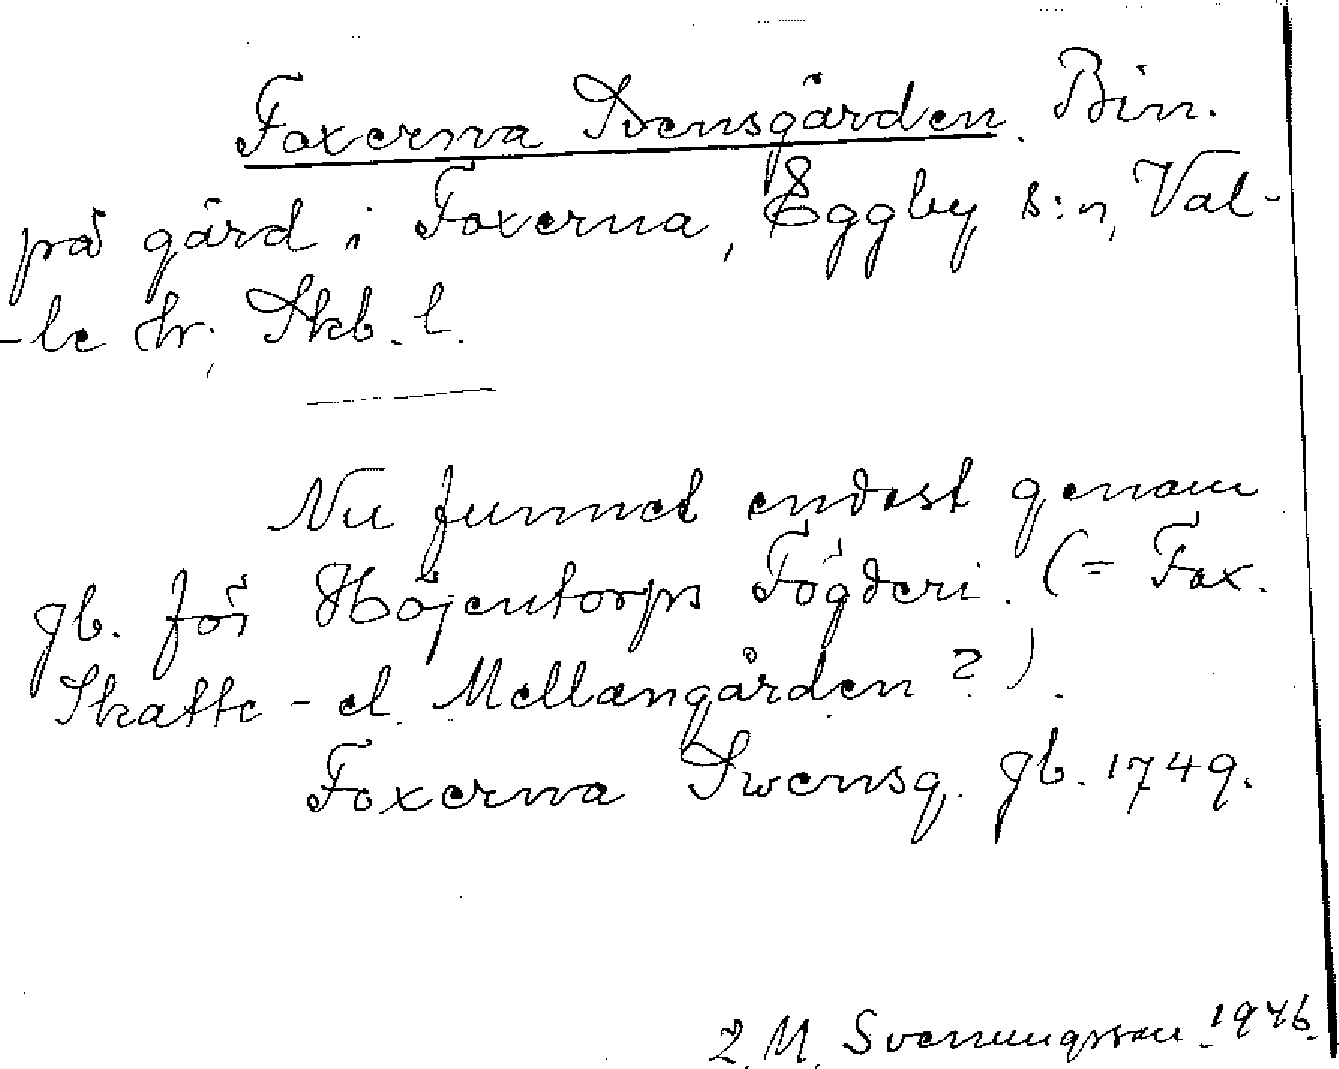 Foxerna Svensgården. Bin.
på gård i Foxerna, Eggby s:n, Val-
-le hr, Skb. l.
Nu funnet endast genom
gb. för Höjentorps Fögderi. (= Fox.
Skatte- el. Mellangården?).
Foxerna Swensg. gb. 1749.
M. Svenungsson 1946.